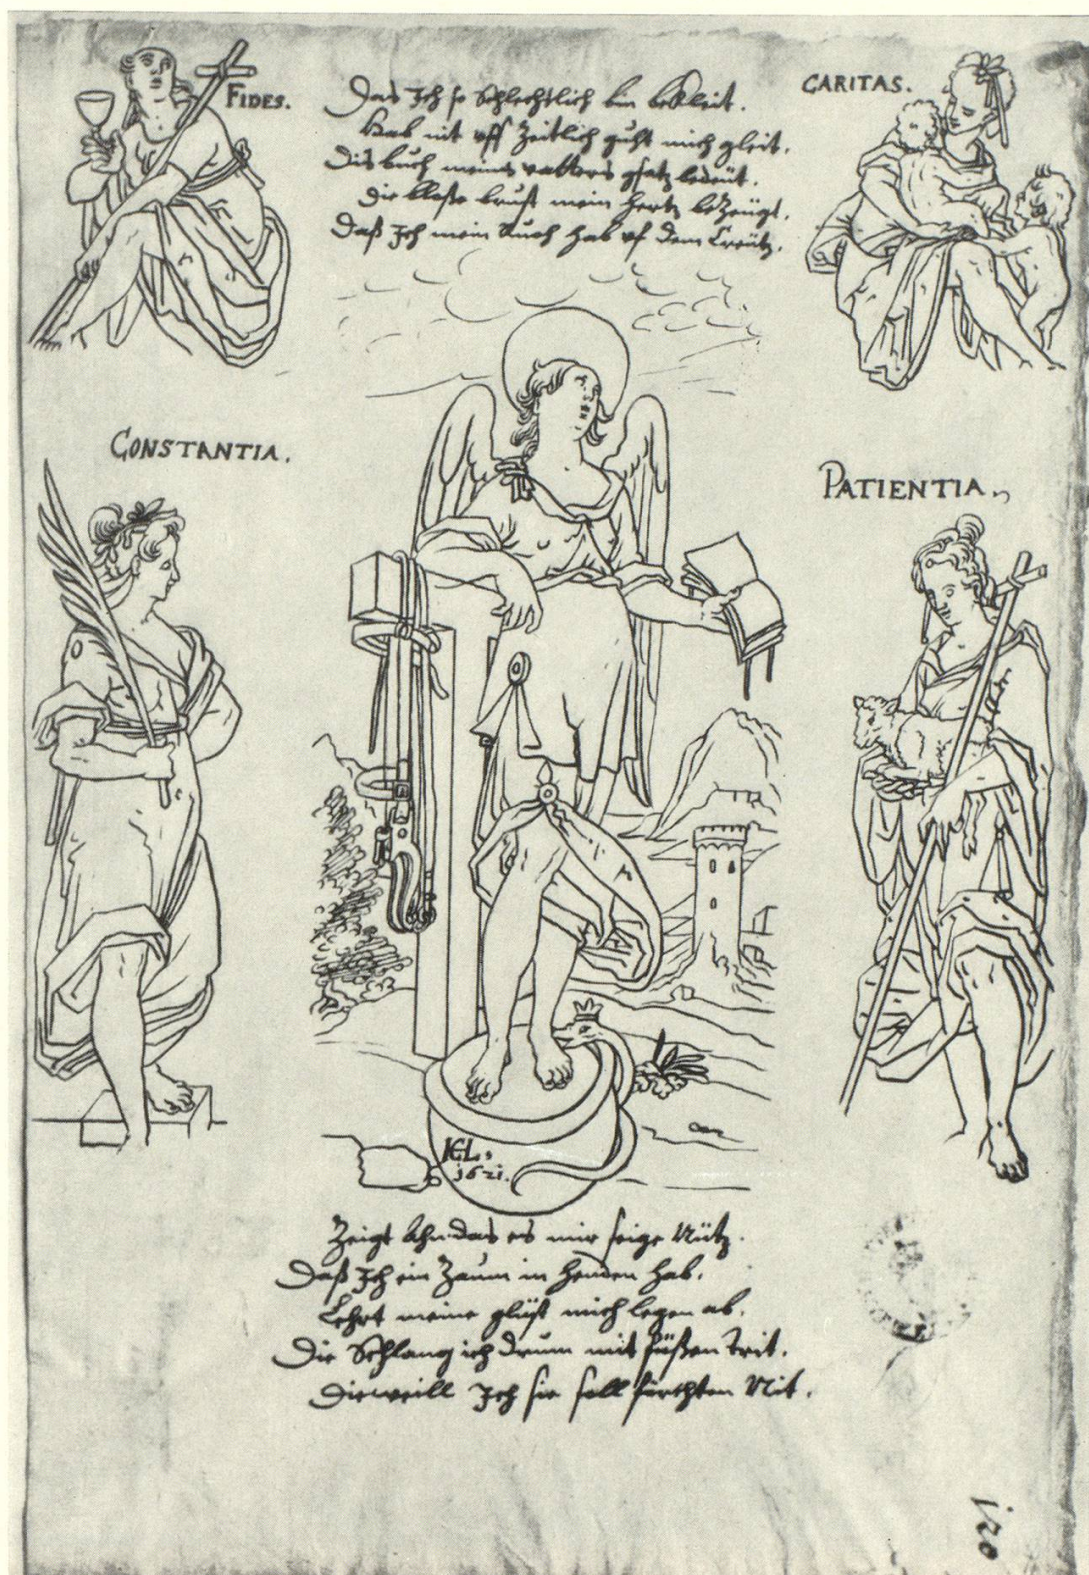 FIDES.
Das Ich so Schlechtlich bin bekleit.
Hab nit uff Zeitlich guht mich gleit.
Dis buch meins vatters gsatz bedeüt.
Die bloße brust mein hertz bezeügt.
Daß Ich mein Ruoh hab uf dem Creütz.
CARITAS.
CONSTANTIA.
PATIENTIA.
1621.
Zeigt das es mir seige Nütz.
Daß Ich ein Zaum in henden hab.
Lehrt meine glüst mich legen ab.
Die Schlang ich drum mit füßen trit.
Dieweill Ich sie soll fürchten Nit.
120